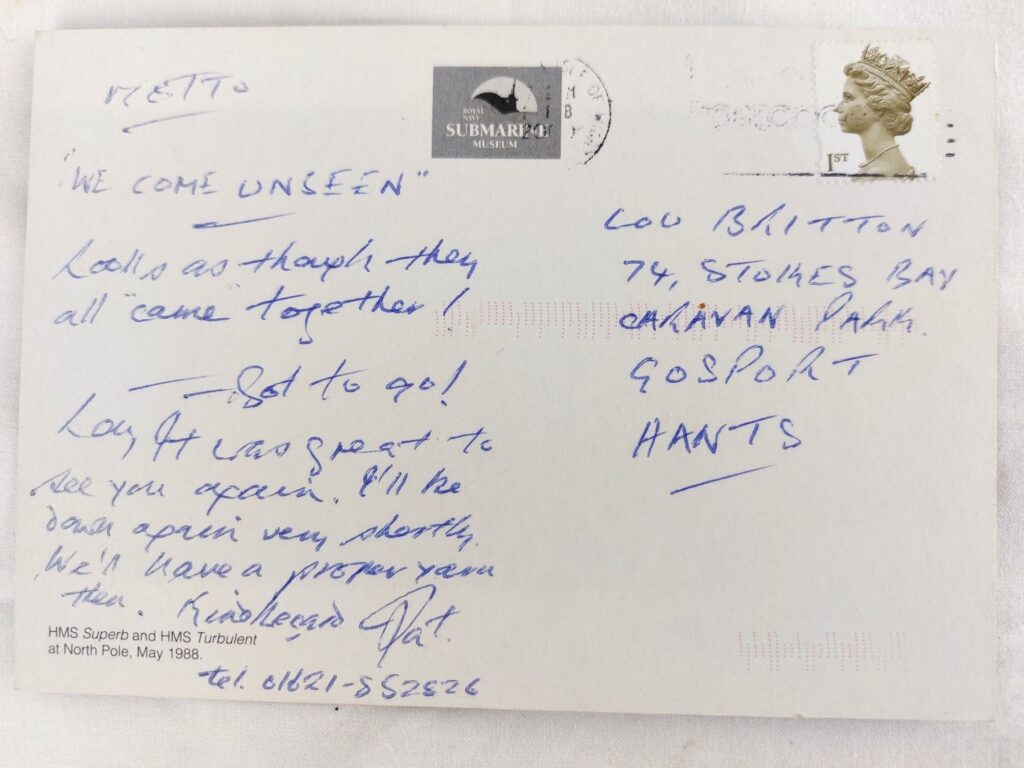 METTO
"WE COME UNSEEN"
Looks as though they
all "came" together!
— Got to go!
Lou, It was great to
see you again. I'll be
down again very shortly.
We'll have a proper yarn
then. Kind Regards Pat.
HMS Superb and HMS Turbulent
at North Pole, May 1988.
tel. 01621-852826
ROYAL
NAVY
SUBMARINE
MUSEUM
ISLE OF WIGHT
1ST
LOU BRITTON
74, STOKES BAY
CARAVAN PARK.
GOSPORT
HANTS